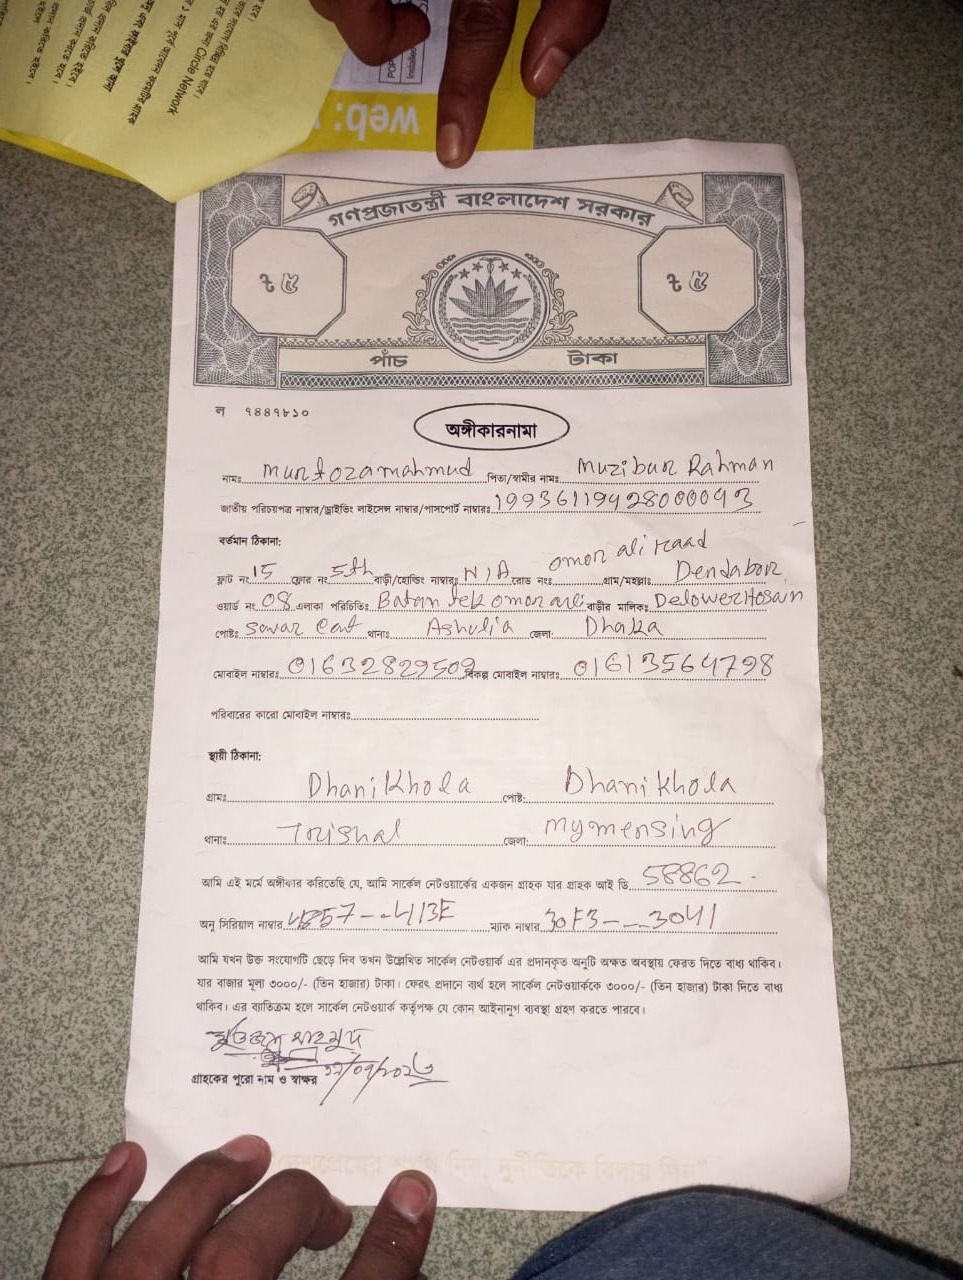 web:
Circle Network
গণপ্রজাতন্ত্রী বাংলাদেশ সরকার
৳ ৫ ৳ ৫
পাঁচ টাকা
ল ৭৪৪৭৮১০
অঙ্গীকারনামা
নামঃ Murtozamahmud পিতা/স্বামীর নামঃ Muzibur Rahman
জাতীয় পরিচয়পত্র নাম্বার/ড্রাইভিং লাইসেন্স নাম্বার/পাসপোর্ট নাম্বারঃ 19936119428000043
বর্তমান ঠিকানা:
ফ্লাট নং 15 ফ্লোর নং 5th বাড়ী/হোল্ডিং নাম্বারঃ N/A রোড নংঃ omor ali road গ্রাম/মহল্লাঃ Dendabor,
ওয়ার্ড নং 08 এলাকা পরিচিতিঃ Batan tek omor ali বাড়ীর মালিকঃ DelowerHosan
পোষ্টঃ Savar Cant থানাঃ Ashulia জেলা: Dhaka
মোবাইল নাম্বারঃ 01632829509 বিকল্প মোবাইল নাম্বারঃ 01613564798
পরিবারের কারো মোবাইল নাম্বারঃ
স্থায়ী ঠিকানা:
গ্রামঃ Dhanikhola পোষ্ট: Dhanikhola
থানাঃ Trishal জেলা: mymensing
আমি এই মর্মে অঙ্গীকার করিতেছি যে, আমি সার্কেল নেটওয়ার্কের একজন গ্রাহক যার গ্রাহক আই ডি 58862
অনু সিরিয়াল নাম্বার 4857---413E ম্যাক নাম্বার 30F3---3041
আমি যখন উক্ত সংযোগটি ছেড়ে দিব তখন উল্লেখিত সার্কেল নেটওয়ার্ক এর প্রদানকৃত অনুটি অক্ষত অবস্থায় ফেরত দিতে বাধ্য থাকিব।
যার বাজার মূল্য ৩০০০/- (তিন হাজার) টাকা। ফেরৎ প্রদানে ব্যর্থ হলে সার্কেল নেটওয়ার্ককে ৩০০০/- (তিন হাজার) টাকা দিতে বাধ্য
থাকিব। এর ব্যতিক্রম হলে সার্কেল নেটওয়ার্ক কর্তৃপক্ষ যে কোন আইনানুগ ব্যবস্থা গ্রহণ করতে পারবে।
গ্রাহকের পুরো নাম ও স্বাক্ষর